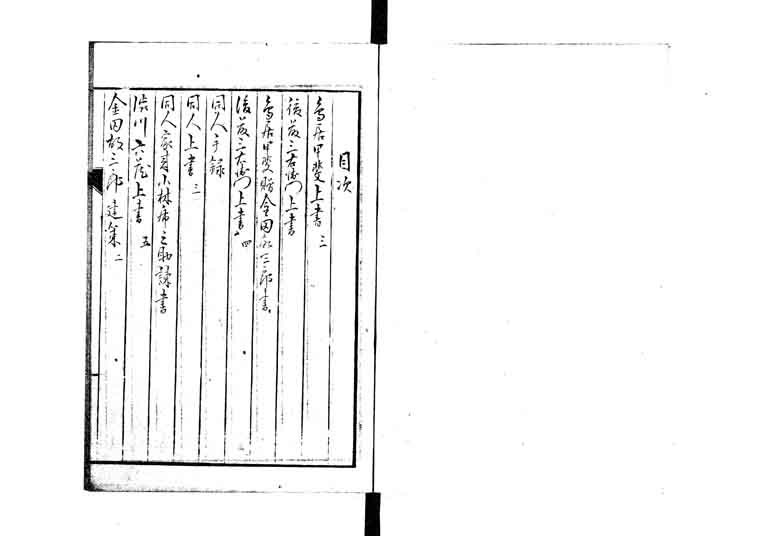 目次
鳥居甲斐上書 三
後藤三右衛門上書
鳥居甲斐贈金田故三郎書
後藤三右衛門上書 四
同人手録
同人上書 三
同人家来小林市之助訴書
渋川六蔵上書 五
金田故三郎建集 二